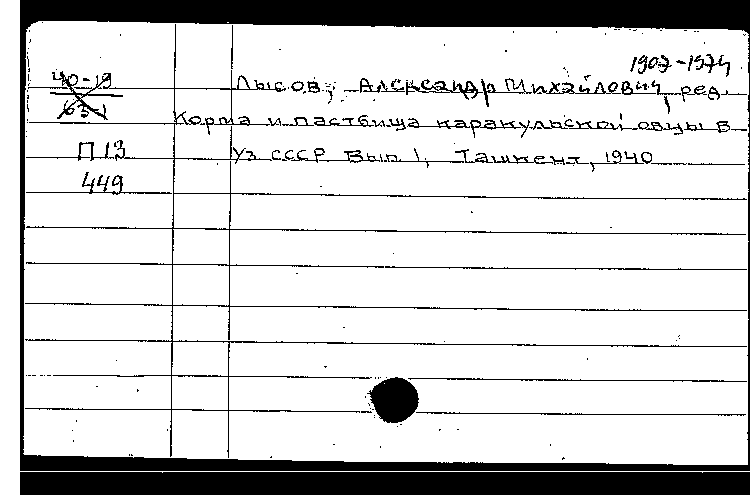 1907-1974
40-19
63-1
П13
449
Лысов, Александр Михайлович, ред.
Корма и пастбища каракульской овцы в
Уз СССР. Вып 1, Ташкент, 1940